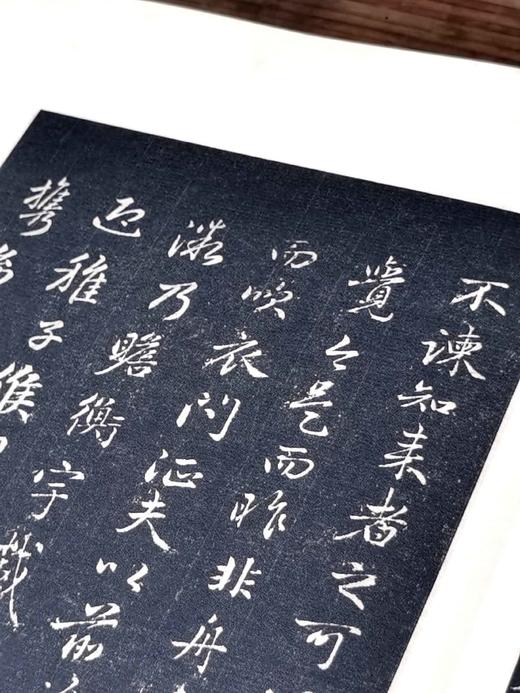 不諫知来者之可
覺今是而昨非舟
而吹衣问征夫以前
微乃瞻衡宇載
迎稚子候
携